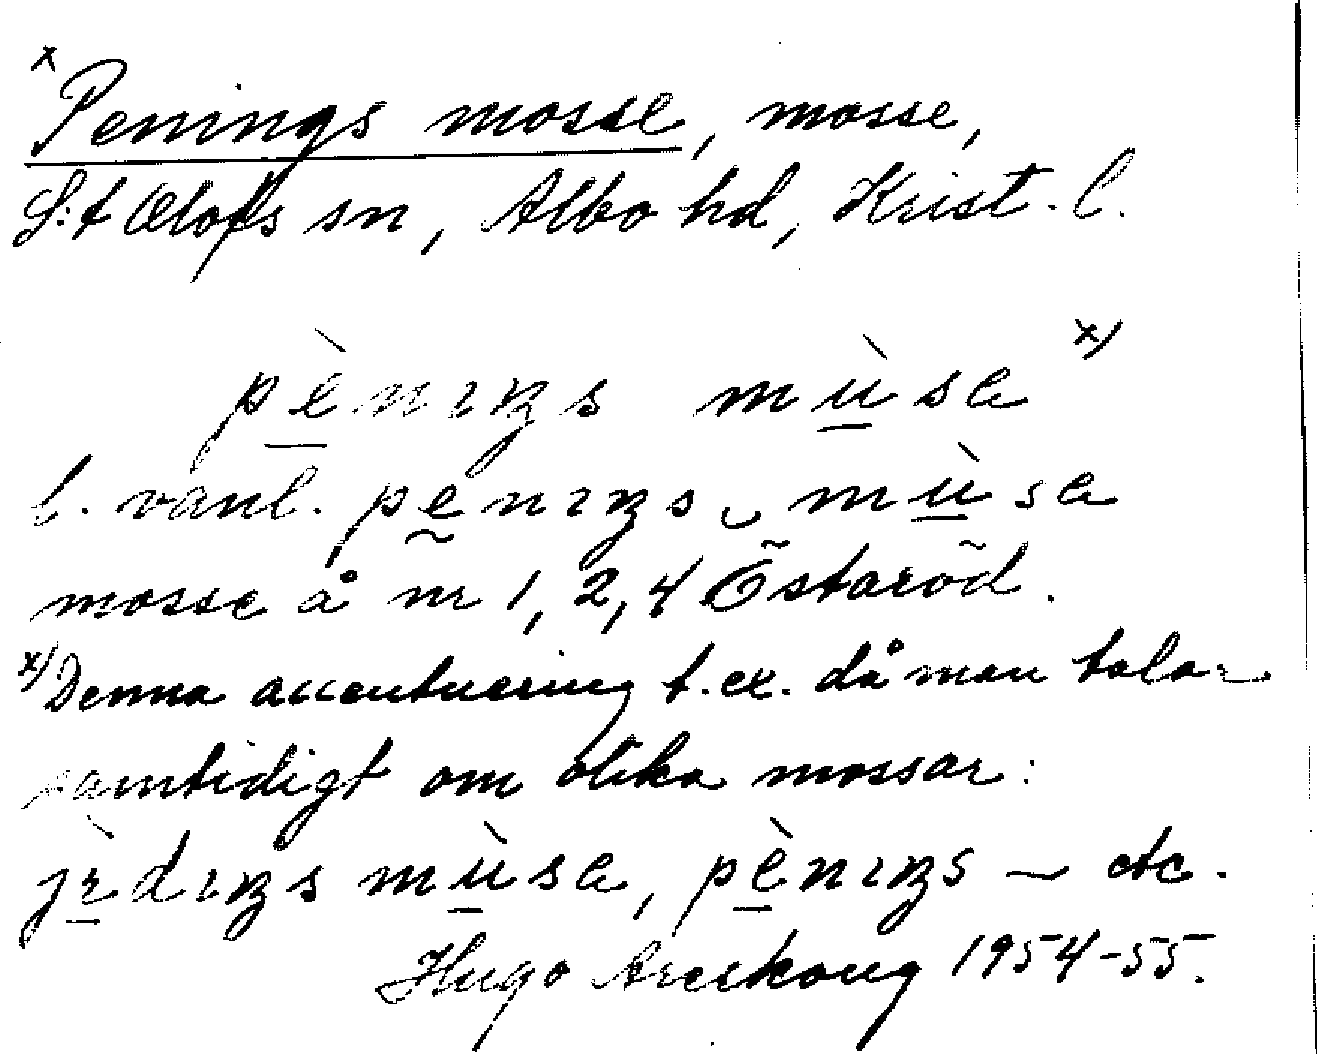 x
Penings mosse, mosse,
S:t Olofs sn, Albo hd, Krist. l.
pènıŋs mùsa x)
l. vanl. penıŋs ‿ mùsa
mosse å nr 1, 2, 4 Östaröd.
x) Denna accentuering t.ex. då man talar
samtidigt om olika mossar:
mùsa, pènıŋs – etc.
Hugo Areskoug 1954-55.